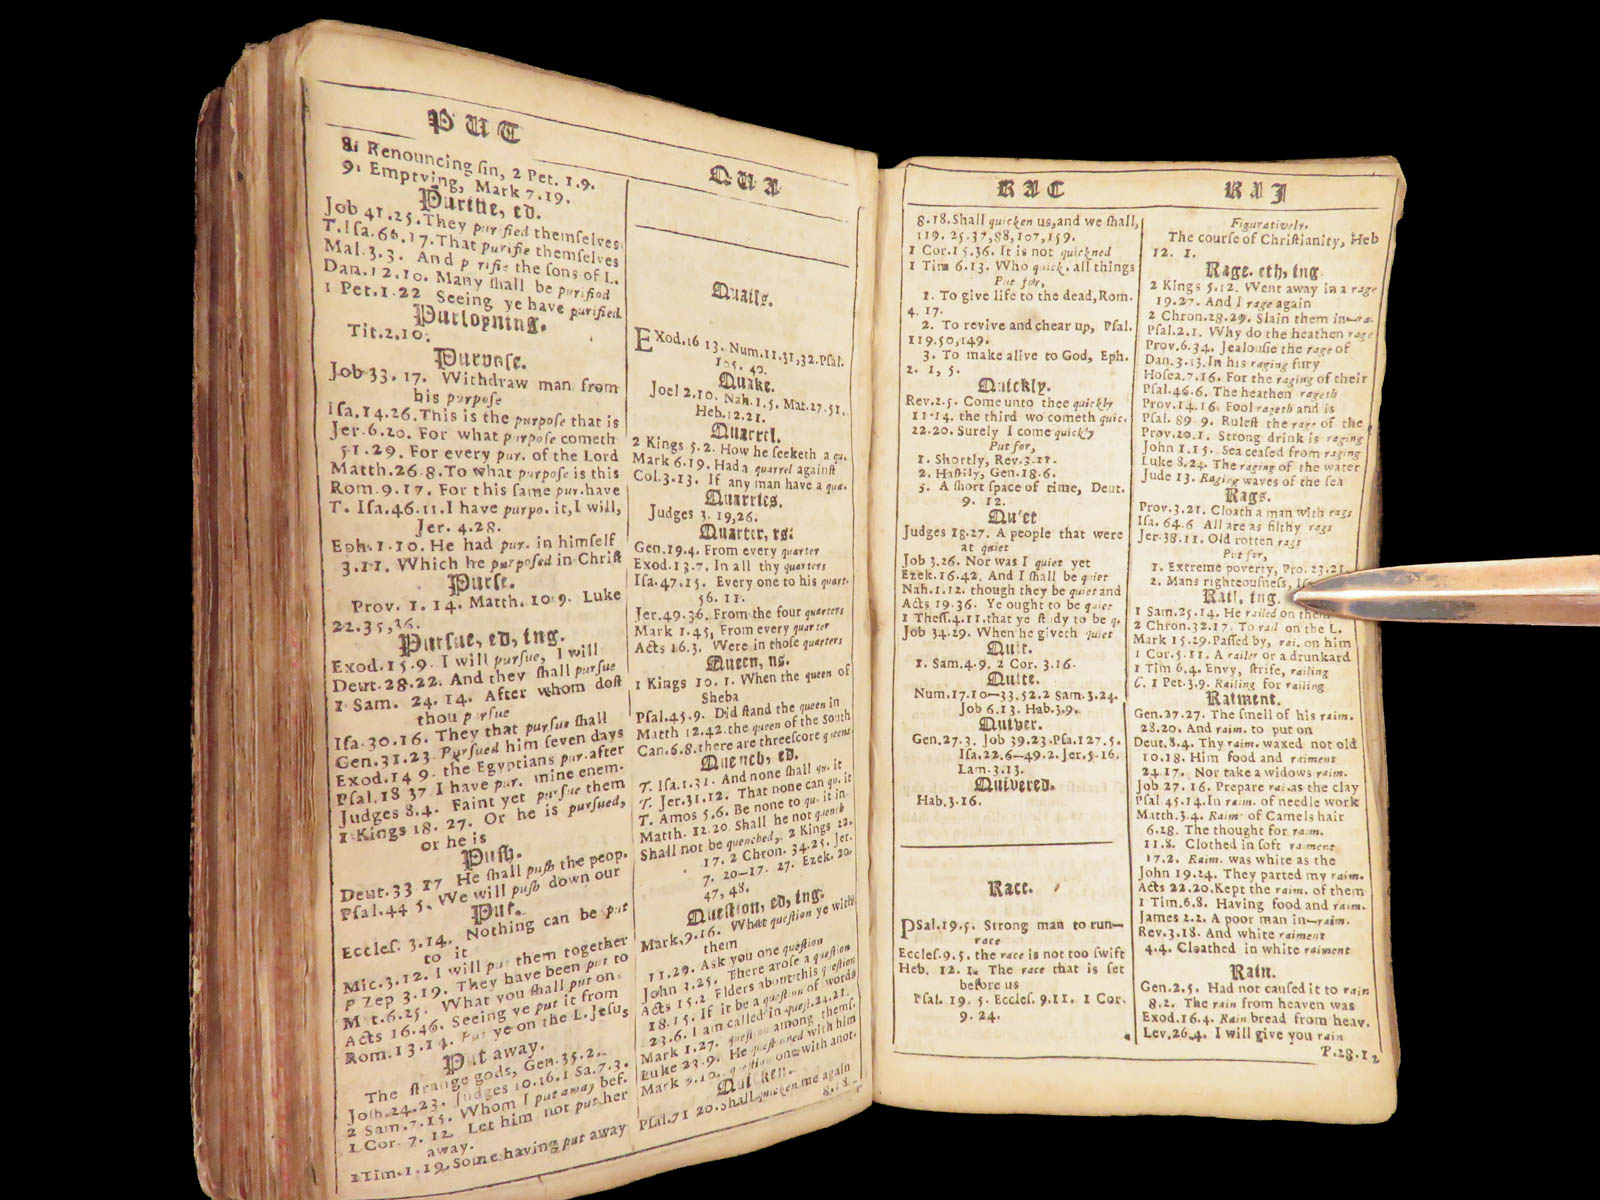 PUT
8. Renouncing ſin, 2 Pet. 1.9.
9. Emptying, Mark 7.19.
Purifie, ed.
Job 41.25. They purified themſelves
T. Iſa.66.17. That purifie themſelves
Mal.3.3. And p rifie the ſons of L.
Dan.12.10. Many ſhall be purified
1 Pet.1.22 Seeing ye have purified
Purloyning.
Tit.2,10.
Purpoſe.
Job 33. 17. Withdraw man from
his purpoſe
Iſa.14.26. This is the purpoſe that is
Jer.6.20. For what purpoſe cometh
51.29. For every pur. of the Lord
Matth.26 8. To what purpoſe is this
Rom.9.17. For this ſame pur. have
T. Iſa.46.11. I have purpo. it, I will,
Jer. 4.28.
Eph.1.10. He had pur. in himſelf
3.11. Which he purpoſed in Chriſt
Purſe.
Prov. 1. 14. Matth. 10 9. Luke
22.35,36.
Purſue, ed, ing.
Exod.15.9. I will purſue, I will
Deut.28.22. And they ſhall purſue
1 Sam. 24. 14. After whom doſt
thou purſue
Iſa.30.16. They that purſue ſhall
Gen.31.23 Purſued him ſeven days
Exod.14 9. the Egyptians pur. after
Pſal.18 37 I have pur. mine enem.
Judges 8.4. Faint yet purſue them
1 Kings 18. 27. Or he is purſued,
or he is
Puſh.
Deut.33 17 He ſhall puſh the peop.
Pſal.44 5. We will puſh down our
Put.
Eccleſ. 3.14. Nothing can be put
to it
Mic.3.12. I will put them together
P Zep 3.19. They have been put to
M t.6.25. What you ſhall put on
Acts 16.46. Seeing ye put it from
Rom.13.14. Put ye on the L. Jeſus
Put away.
The ſtrange gods, Gen.35.2.
Joſh.24.23. Judges 10.16. 1 Sa.7.3.
2 Sam.7.15. Whom I put away bef.
1 Cor. 7. 12. Let him not put her
away.
1 Tim.1.19. Some having put away
QUI
Quails.
EXod.16 13. Num.11.31,32. Pſal.
105. 40.
Quake.
Joel 2.10. Nah.1.5. Mat.27.51.
Heb.12.21.
Quarrel.
2 Kings 5.2. How he ſeeketh a qu.
Mark 6.19. Had a quarrel againſt
Col.3.13. If any man have a qua.
Quarries.
Judges 3. 19,26.
Quarter, rs.
Gen.19.4. From every quarter
Exod.13.7. In all thy quarters
Iſa.47.15. Every one to his quart.
56. 11.
Jer.49.36. From the four quarters
Mark 1.45, From every quarter
Acts 16.3. Were in thoſe quarters
Queen, ns.
1 Kings 10. 1. When the queen of
Sheba
Pſal.45.9. Did ſtand the queen in
Matth 12.42. the queen of the South
Can.6.8. there are threeſcore queens
Quench, ed.
T. Iſa.1.31. And none ſhall qu. it
T. Jer.31.12. That none can qu. it
T. Amos 5.6. Be none to qu. it in
Matth. 12.20. Shall he not quench
Shall not be quenched, 2 Kings 22.
17. 2 Chron. 34.25. Jer.
7. 20—17. 27. Ezek. 20.
47, 48.
Queſtion, ed, ing.
Mark.9.16. What queſtion ye with
them
11.29. Ask you one queſtion
John 3.25. There aroſe a queſtion
Acts 15.2 Elders about this queſtion
18.15. If it be a queſtion of words
23.6. I am called in queſt.24.21.
Mark 1.27. queſtion among themſ.
Luke 23.9. He queſtioned with him
Mark 9.10. queſtion one with anot.
Quicken.
Pſal.71 20. Shall quicken me again
8.18
RAC
8.18. Shall quicken us, and we ſhall,
119. 25.37,88,107,159.
1 Cor.15.36. It is not quickned
1 Tim 6.13. Who quick. all things
Put for,
1. To give life to the dead, Rom.
4. 17.
2. To revive and chear up, Pſal.
119.50,149.
3. To make alive to God, Eph.
2. 1, 5.
Quickly.
Rev.2.5. Come unto thee quickly
11.14. the third wo cometh quic.
22.20. Surely I come quickly
Put for,
1. Shortly, Rev.3.11.
2. Haſtily, Gen.18.6.
5. A ſhort ſpace of time, Deut.
9. 12.
Qu'et
Judges 18.27. A people that were
at quiet
Job 3.26. Nor was I quiet yet
Ezek.16.42. And I ſhall be quiet
Nah.1.12. though they be quiet and
Acts 19.36. Ye ought to be quiet
1 Theſſ.4.11. that ye ſtudy to be q.
Job 34.29. When he giveth quiet
Quit.
1. Sam.4.9. 2 Cor. 3.16.
Quite.
Num.17.10—33.52.2 Sam.3.24.
Job 6.13. Hab.3.9.
Quiver.
Gen.27.3. Job 39.23. Pſa.127.5.
Iſa.22.6—49.2. Jer.5.16.
Lam.3.13.
Quivered.
Hab.3.16.
Race.
PSal.19.5. Strong man to run—
race
Eccleſ.9.5. the race is not too ſwift
Heb. 12. 1. The race that is ſet
before us
Pſal. 19. 5. Eccleſ. 9.11. 1 Cor.
9. 24.
RAI
Figuratively.
The courſe of Chriſtianity, Heb
12. 1.
Rage. eth, ing.
2 Kings 5.12. Went away in a rage
19.27. And I rage again
2 Chron.28.29. Slain them in—ra.
Pſal.2.1. Why do the heathen rage
Prov.6.34. Jealouſie the rage of
Dan.3.13. In his raging fury
Hoſea.7.16. For the raging of their
Pſal.46.6. The heathen rageth
Prov.14.16. Fool rageth and is
Pſal. 89 9. Ruleſt the rage of the
Prov.20.1. Strong drink is raging
John 1.15. Sea ceaſed from raging
Luke 8.24. The raging of the water
Jude 13. Raging waves of the ſea
Rags.
Prov.3.21. Cloath a man with rags
Iſa. 64.6 All are as filthy rags
Jer.38.11. Old rotten rags
Put for,
1. Extreme poverty, Pro. 23.21.
2. Mans righteouſneſs,
Rail, ing.
1 Sam.25.14. He railed on them
2 Chron.32.17. To rail on the L.
Mark 15.29. Paſſed by, rai. on him
1 Cor.5.11. A railer or a drunkard
1 Tim 6.4. Envy, ſtrife, railing
C. 1 Pet.3.9. Railing for railing
Raiment.
Gen.27.27. The ſmell of his raim.
28.20. And raim. to put on
Deut.8.4. Thy raim. waxed not old
10.18. Him food and raiment
24.17. Nor take a widows raim.
Job 27. 16. Prepare rai. as the clay
Pſal.45.14. In raim. of needle work
Matth.3.4. Raim of Camels hair
6.28. The thought for raim.
11.8. Clothed in ſoft raiment
17.2. Raim. was white as the
John 19.24. They parted my raim.
Acts 22.20. Kept the raim. of them
1 Tim.6.8. Having food and raim.
James 2.2. A poor man in—raim.
Rev.3.18. And white raiment
4.4. Cloathed in white raiment
Rain.
Gen.2.5. Had not cauſed it to rain
8.2. The rain from heaven was
Exod.16.4. Rain bread from heav.
Lev.26.4. I will give you rain
P.28.12